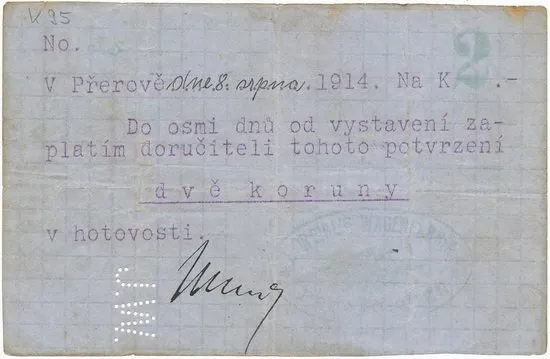 K 35
No.
V Přerově dne 8. srpna. 1914. Na K 2.-
Do osmi dnů od vystavení za-
platím doručiteli tohoto potvrzení
dvě koruny
v hotovosti.